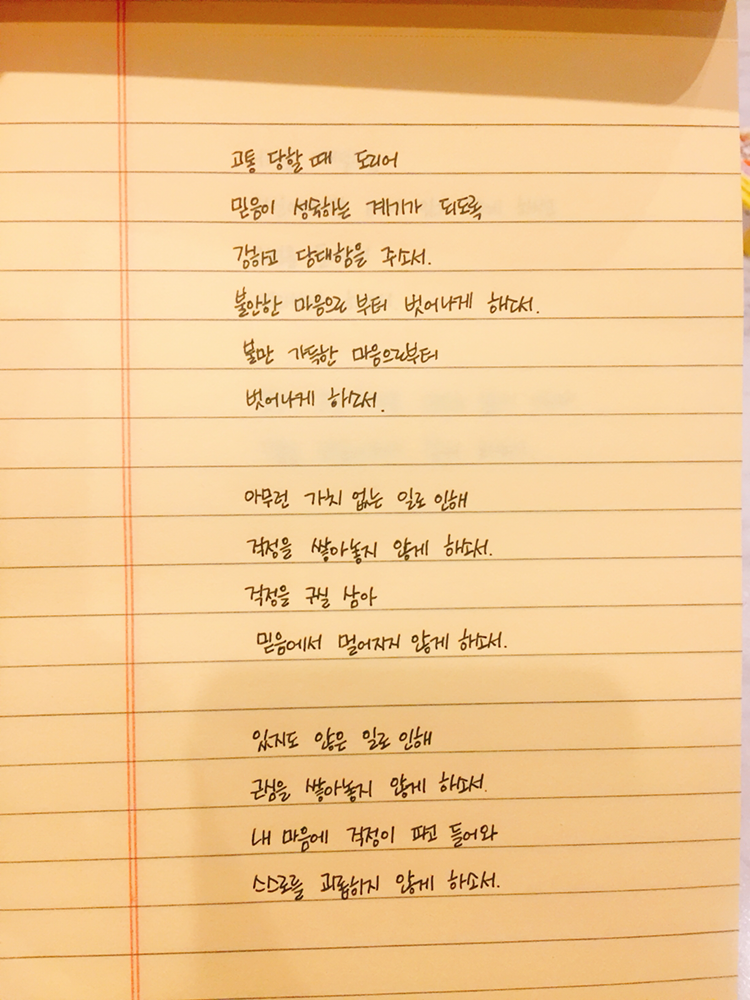 고통 당할 때 도리어
믿음이 성숙하는 계기가 되도록
강하고 담대함을 주소서.
불안한 마음으로 부터 벗어나게 하소서.
불만 가득한 마음으로부터
벗어나게 하소서.
아무런 가치 없는 일로 인해
걱정을 쌓아놓지 않게 하소서.
걱정을 구실 삼아
믿음에서 멀어지지 않게 하소서.
있지도 않은 일로 인해
근심을 쌓아놓지 않게 하소서.
내 마음에 걱정이 파고 들어와
스스로를 괴롭히지 않게 하소서.